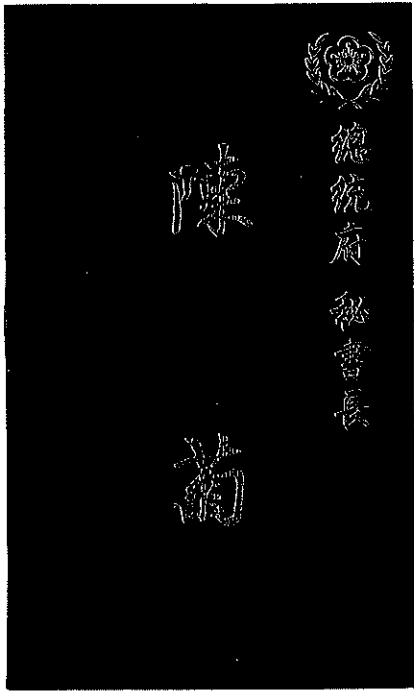 總統府 秘書長
陳 菊